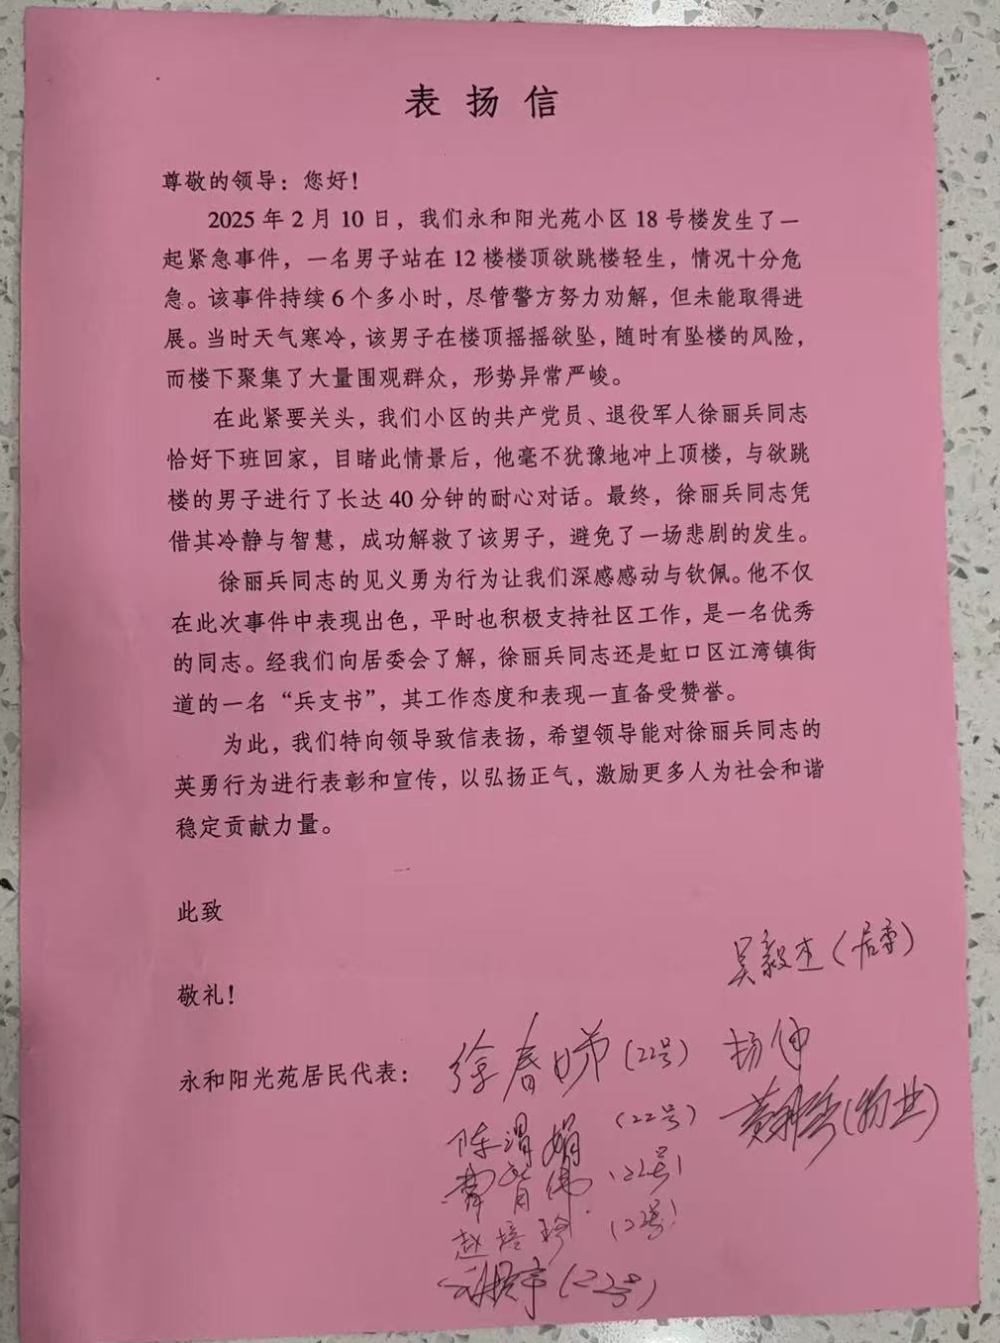 表扬信
尊敬的领导：您好！
2025 年 2 月 10 日，我们永和阳光苑小区 18 号楼发生了一
起紧急事件，一名男子站在 12 楼楼顶欲跳楼轻生，情况十分危
急。该事件持续 6 个多小时，尽管警方努力劝解，但未能取得进
展。当时天气寒冷，该男子在楼顶摇摇欲坠，随时有坠楼的风险，
而楼下聚集了大量围观群众，形势异常严峻。
在此紧要关头，我们小区的共产党员、退役军人徐丽兵同志
恰好下班回家，目睹此情景后，他毫不犹豫地冲上顶楼，与欲跳
楼的男子进行了长达 40 分钟的耐心对话。最终，徐丽兵同志凭
借其冷静与智慧，成功解救了该男子，避免了一场悲剧的发生。
徐丽兵同志的见义勇为行为让我们深感感动与钦佩。他不仅
在此次事件中表现出色，平时也积极支持社区工作，是一名优秀
的同志。经我们向居委会了解，徐丽兵同志还是虹口区江湾镇街
道的一名“兵支书”，其工作态度和表现一直备受赞誉。
为此，我们特向领导致信表扬，希望领导能对徐丽兵同志的
英勇行为进行表彰和宣传，以弘扬正气，激励更多人为社会和谐
稳定贡献力量。
此致
吴毅杰（居委）
敬礼！
永和阳光苑居民代表：徐春娣（22号） 杨伸
陈渭娟（22号） （物业）
（22号）
赵培珍（22号）
（22号）